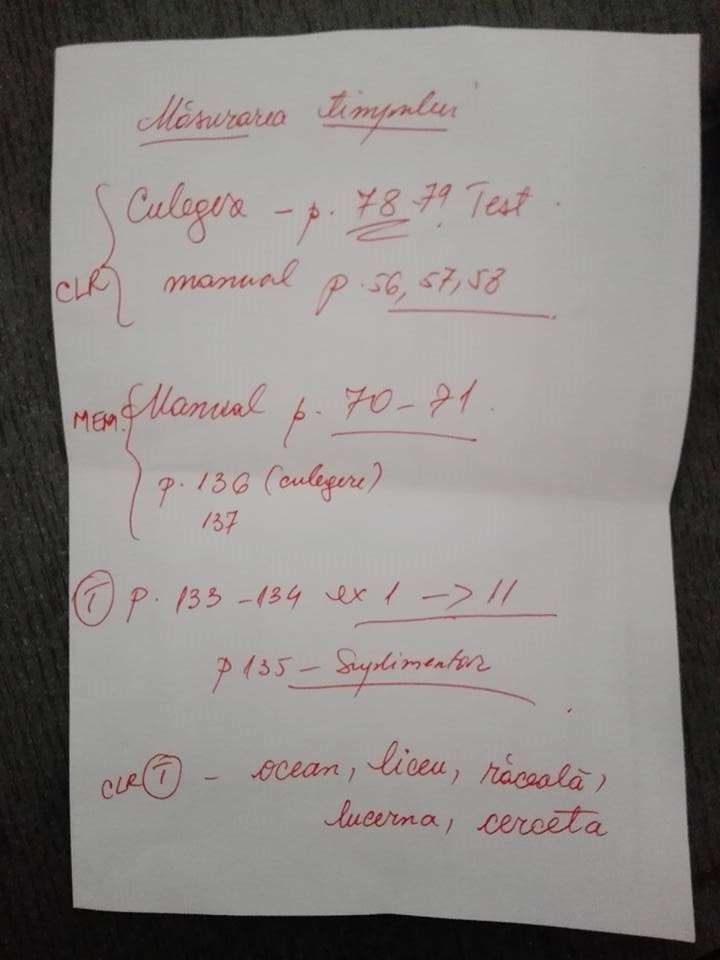 Măsurarea timpului
Culegere - p. 78 79 Test
CLR manual p. 56, 57, 58
MEM. Manual p. 70 - 71
p. 136 (culegere)
137
T p. 133 - 134 ex 1 -> 11
p 135 - Suplimentar
CLR T - ocean, liceu, răceală,
lucerna, cerceta